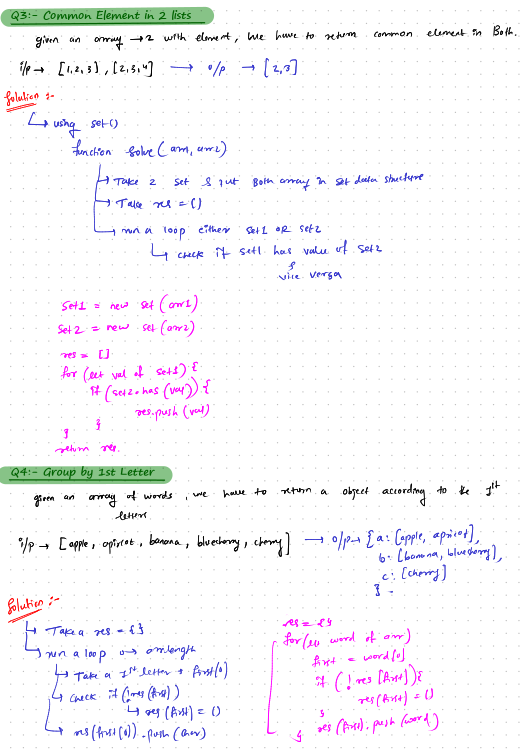 Q3:- Common Element in 2 lists
given an array → 2 with element, we have to return common element in Both.
i/p → [1,2,3], [2,3,4] → o/p → [2,3]
Solution :-
using set()
function solve (arr, arr2)
Take 2 set & put Both array in set data structure
Take res = ()
run a loop either set1 OR set2
check if set1 has value of set2
&
vice versa
Set1 = new set (arr1)
Set2 = new set (arr2)
res = []
for (let val of set1) {
if (set2.has (val)) {
res.push (val)
}
}
return res.
Q4:- Group by 1st Letter
given an array of words, we have to return a object according to the 1st
letters
i/p → [apple, apricot, banana, bluecherry, cherry] → o/p → { a: [apple, apricot],
b: [banana, bluecherry],
c: [cherry]
}
Solution :-
Take a res = {}
run a loop 0 → arr.length
Take a 1st letter → first[0]
check if (!res (first))
res (first) = ()
res (first[0]).push
res = {}
for (let word of arr)
first = word[0]
if (! res [first]) {
res (first) = ()
}
res (first). push (word)
}